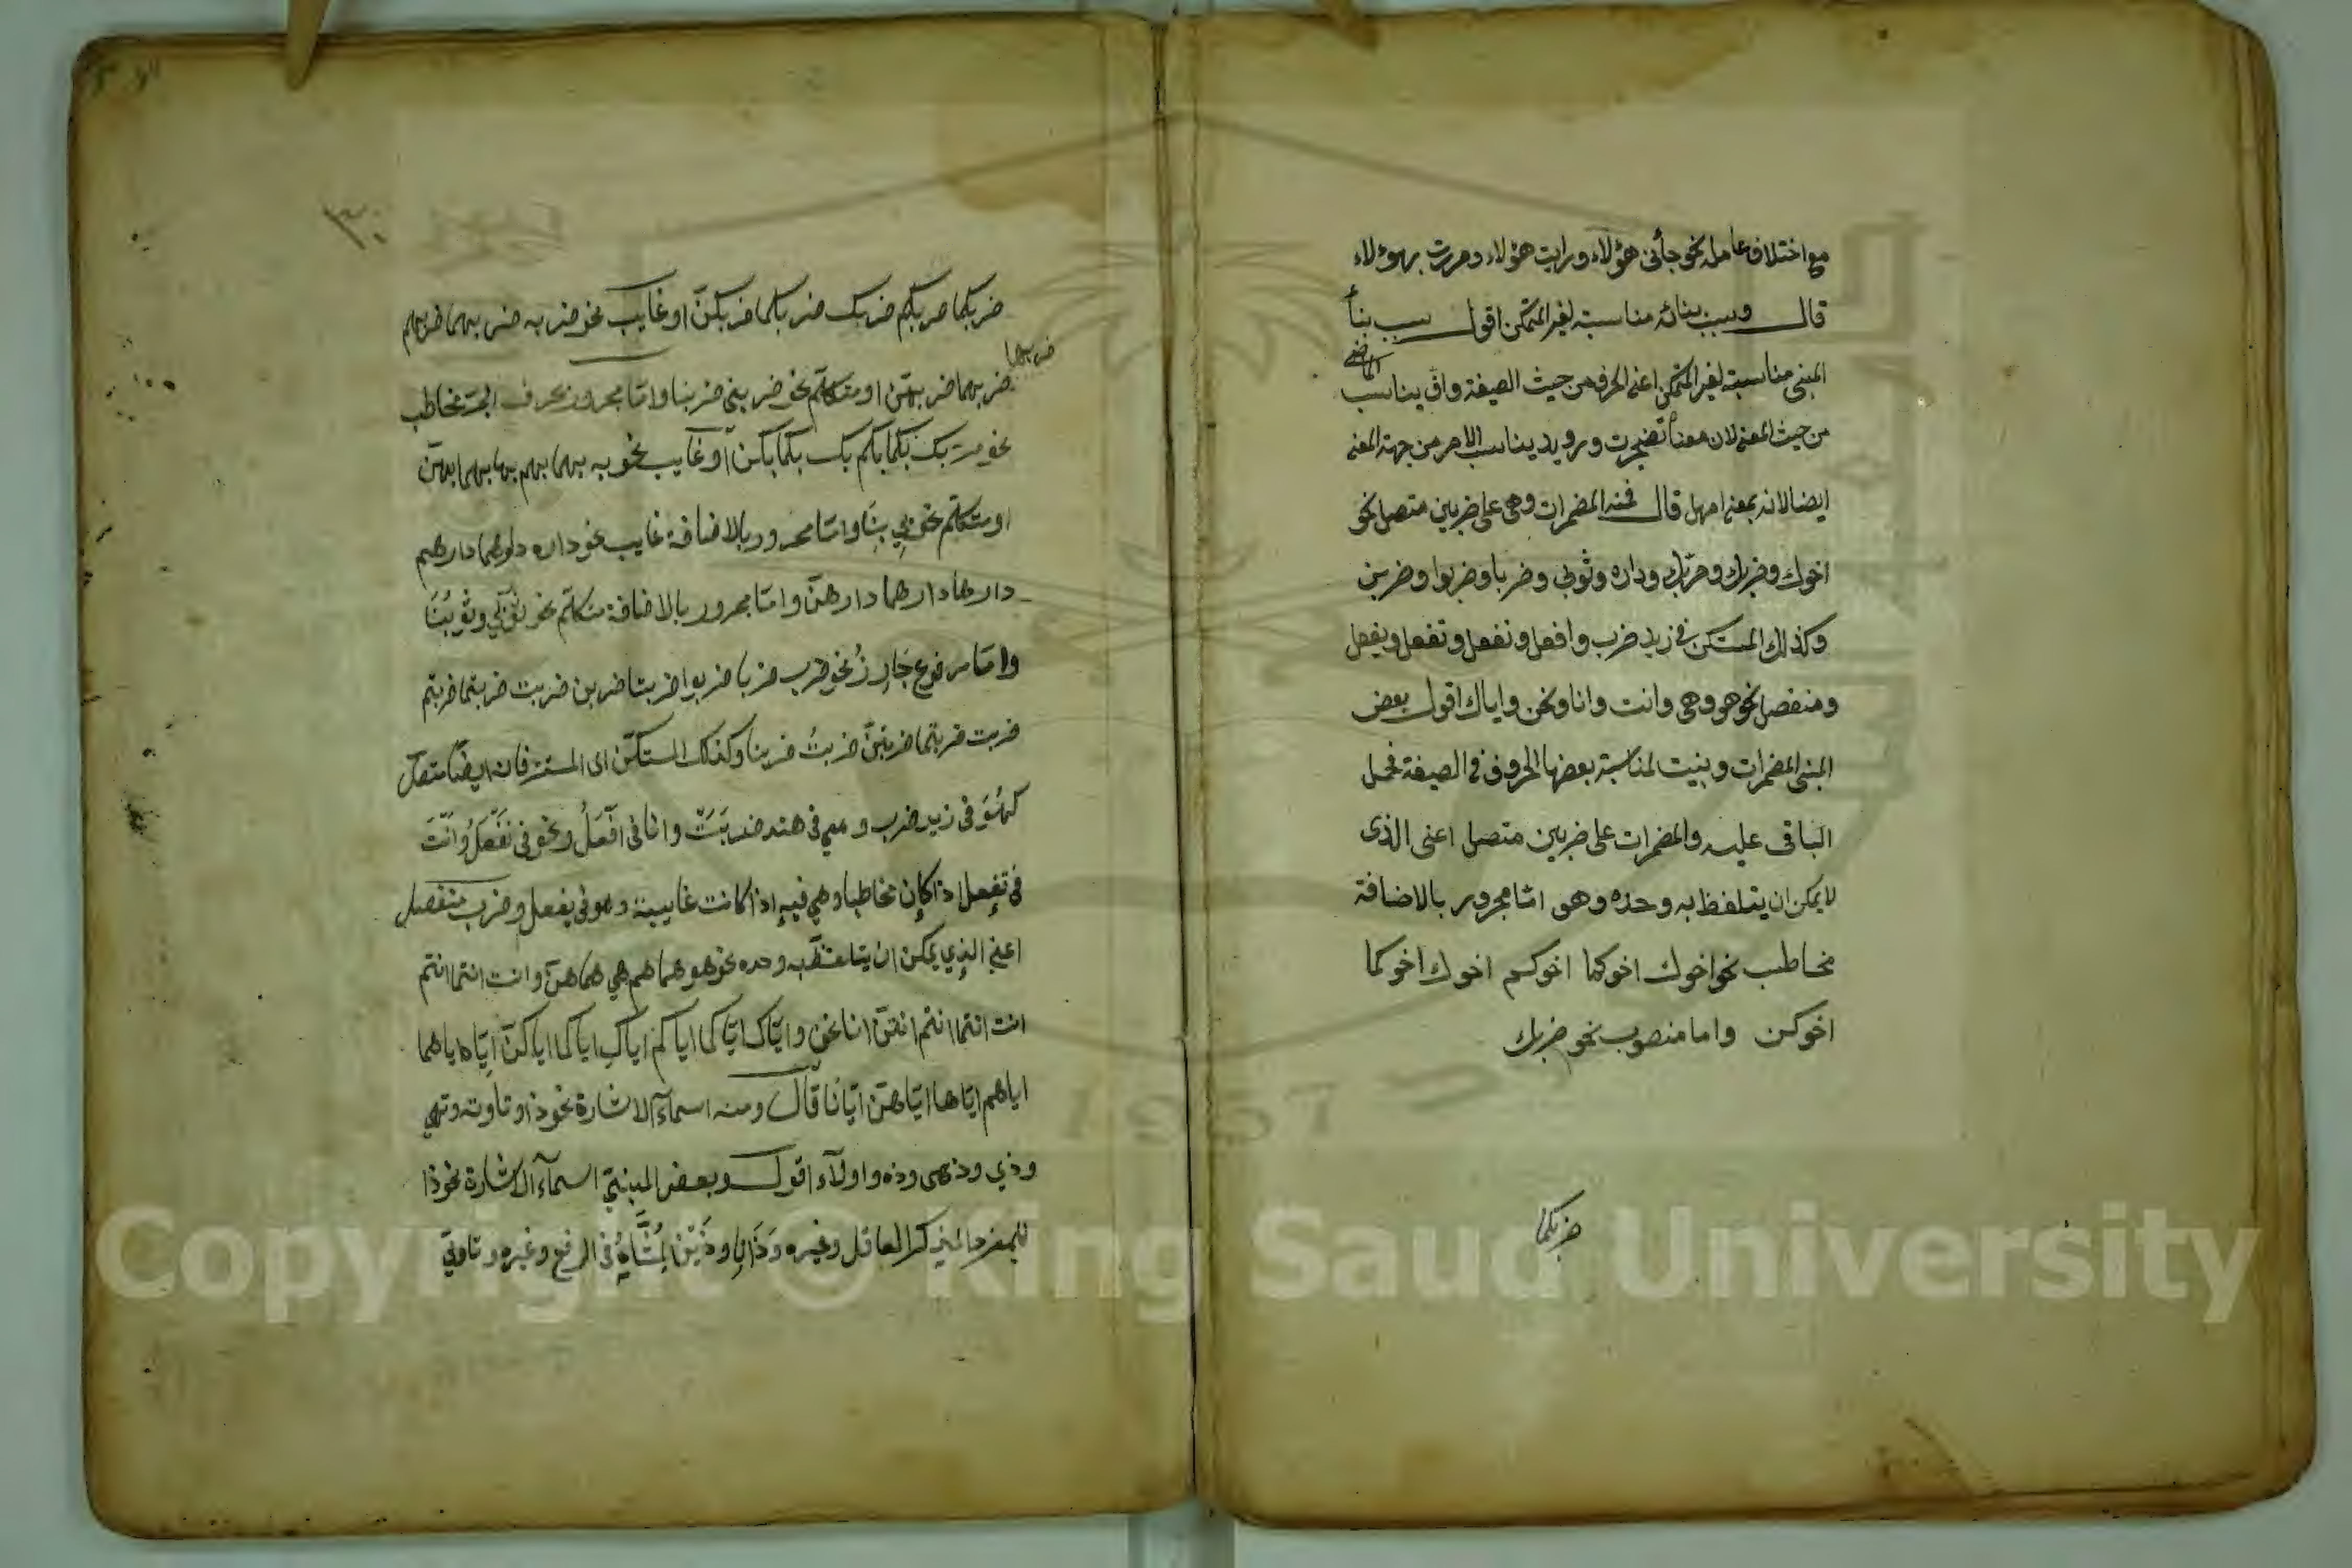 مع اختلاف عامله نحو جأنى هؤلاء ورايت هؤلاء ومررت بهؤلاء
قال وسبب بنائه مناسبته لغير المتمكن اقول سبب بنأ
المبنى مناسبته لغير المتمكن اعنى الحرف من حيث الصيغة واف يناسب الماضى
من حيث المعنى لان معنأ تضجرت ورويد يناسب الامر من جهة المعنى
ايضا لانه بمعنى امهل قال فمنه المضمرات وهى على ضربين متصل نحو
اخوك وضربك ومر بك وداره وثوبى وضربا وضربوا وضربن
وكذلك المستكن فى زيد ضرب وافعل ونفعل وتفعل ويفعل
ومنفصل نحو هو وهى وانت وانا ونحن واياك اقول بعض
المبنى المضمرات وبنيت لمناسبة بعضها الحروف فى الصيغة فحمل
الباقى عليه والمضمرات على ضربين متصل اعنى الذى
لا يمكن ان يتلفظ به وحده وهو اما مجرور بالاضافة
مخاطب نحو اخوك اخوكما اخوكم اخوك اخوكما
اخوكن واما منصوب نحو ضربك
ضربكما
٣٠
ضربكما ضربكم ضربك ضربكما ضربكن او غايب نحو ضربه ضربهما ضربهم
ضربها
ضربهما ضربهن او متكلم نحو ضربنى ضربنا واما مجرور بحرف الجر مخاطب
نحو مررت بك بكما بكم بك بكما بكن او غايب نحو به بهما بهم بها بهما بهن
او متكلم نحو بي بنا واما مجرور بالاضافة غايب نحو داره دارهما دارهم
دارها دارهما دارهن واما مجرور بالاضافة متكلم نحو ثوبي وثوبنا
واما مرفوع بارز نحو ضرب ضربا ضربوا ضربتا ضربن ضربت ضربتما ضربتم
ضربت ضربتما ضربتن ضربت ضربنا وكذلك المستكن اى المستتر فانه ايضا متصل
كهو فى زيد ضرب وهي فى هند ضربت وانا فى افعل ونحن فى نفعل وانت
فى تفعل اذا كان مخاطبا وهي فيه اذا كانت غايبة وهو فى يفعل وضرب منفصل
اعني الذي يمكن ان يتلفظ به وحده نحو هو هما هم هي هما هن وانت انتما انتم
انت انتما انتم انتن انا نحن واياك اياكما اياكم اياك اياكما اياكن اياه اياهما
اياهم اياها اياهن ايانا قال ومنه اسمآء الاشارة نحو ذا وتا وته وتهي
وذي وذهى وذه واولآء اقول وبعض المبنيّ اسمآء الاشارة نحو ذا
للمفرد المذكر العاقل وغيره وذان وذين لمثناه فى الرفع وغيره وتا وتي